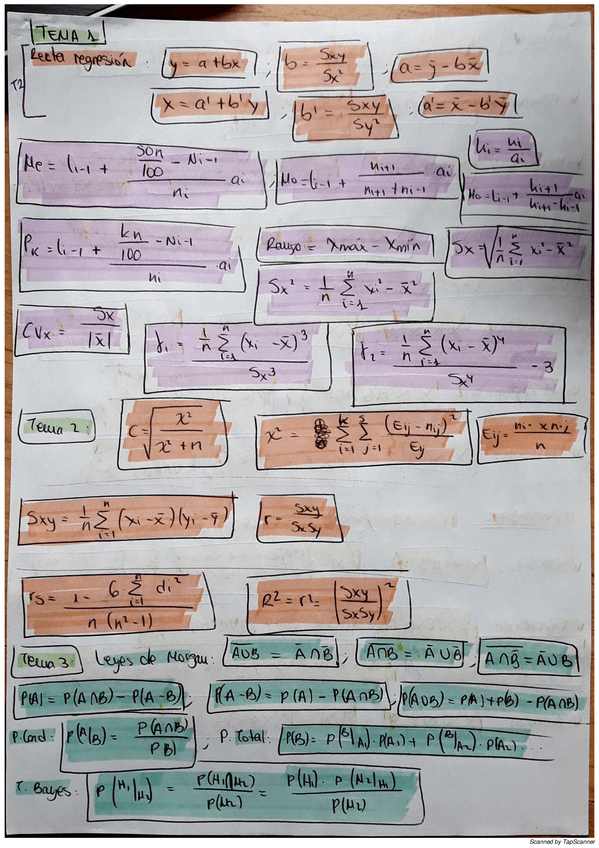 TEMA 1
T2
Recta regresión: y = a + bx ; b = Sxy / Sx² ; a = ȳ - b x̄
x = a' + b' y ; b' = Sxy / Sy² ; a' = x̄ - b' ȳ
hi = ni / ai
Me = li-1 + (50n/100 - Ni-1) / ni · ai ; Mo = li-1 + ni+1 / (ni+1 + ni-1) · ai ; Mo = li-1 + hi+1 / (hi+1 - hi-1) ai
Pk = li-1 + (kn/100 - Ni-1) / ni · ai
Rango = xmáx - xmín
Sx = √(1/n Σ i=1 n xi² - x̄²)
Sx² = 1/n Σ i=1 n xi² - x̄²
CVx = Sx / |x̄|
γ1 = 1/n Σ i=1 n (xi - x̄)³ / Sx³
γ2 = 1/n Σ i=1 n (xi - x̄)⁴ / Sx⁴ - 3
Tema 2: C = √(x² / (x² + n))
x² = Σ i=1 k Σ j=1 s (Eij - nij)² / Eij
Eij = ni· x n·j / n
Sxy = 1/n Σ i=1 n (xi - x̄)(yi - ȳ)
r = Sxy / SxSy
rs = 1 - 6 Σ i=1 n di² / n (n² - 1)
R² = r² = (Sxy / SxSy)²
Tema 3: Leyes de Morgan: A∪B = Ā∩B̄ ; A∩B = Ā∪B̄ ; A∩B = Ā∪B̄
P(A) = P(A∩B) - P(A-B) ; P(A-B) = P(A) - P(A∩B) ; P(A∪B) = P(A) + P(B) - P(A∩B)
P. Cond: P(A|B) = P(A∩B) / P(B) ; P. Total: P(B) = P(B|A1) · P(A1) + P(B|A2) · P(A2)...
T. Bayes: P(H1|M2) = P(H1∩M2) / P(M2) = P(H1) · P(M2|H1) / P(M2)
Scanned by TapScanner